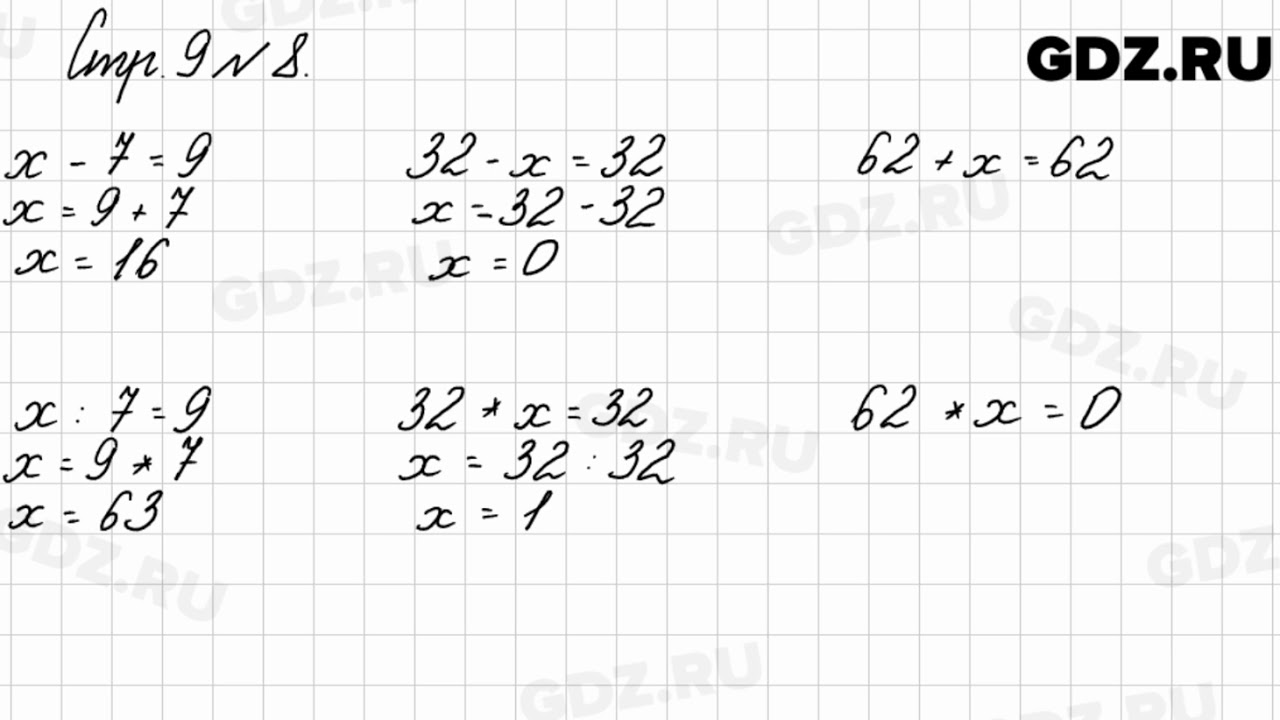 Стр. 9 № 8.
GDZ.RU
x - 7 = 9
x = 9 + 7
x = 16
32 - x = 32
x = 32 - 32
x = 0
62 + x = 62
x : 7 = 9
x = 9 * 7
x = 63
32 * x = 32
x = 32 : 32
x = 1
62 * x = 0
GDZ.RU
GDZ.RU
GDZ.RU
GDZ.RU
GDZ.RU
GDZ.RU